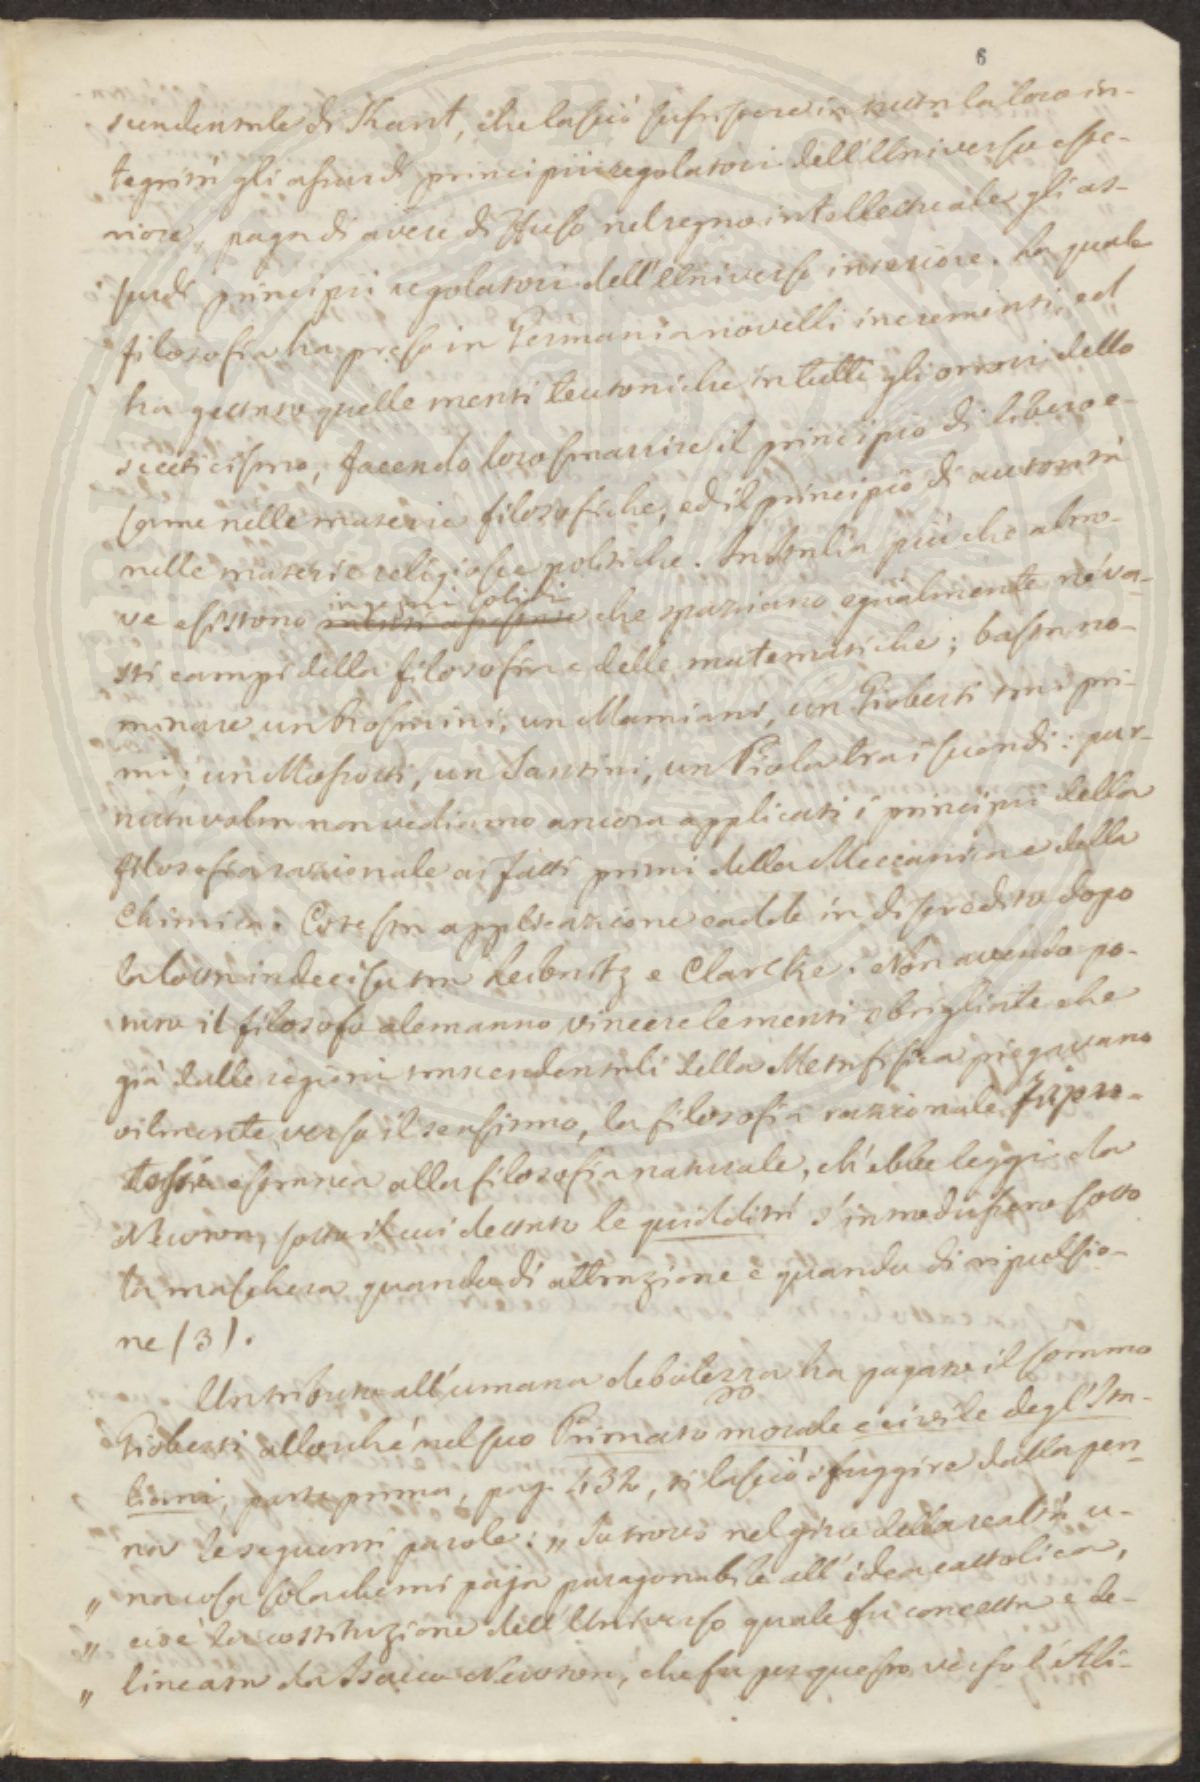 6
scendentale di Kant, che lasciò sussistere in tutta la loro in-
tegrità gli assurdi principii regolatori dell'Universo este-
riore, pago di avere diffuso nel regno intellettuale gli as-
surdi principii regolatori dell'Universo interiore. La quale
filosofia ha preso in Germania novelli incrementi, ed
ha gettato quelle menti teutoniche in tutti gli orrori dello
scetticismo, facendo loro smarrire il principio di libero e-
same nelle materie filosofiche, ed il principio di autorità
nelle materie religiose e politiche. In Italia più che altro-
ve esistono ingegni solidi che spaziano egualmente ne' va-
sti campi della filosofia e delle matematiche; basta no-
minare un Rosmini, un Mamiani, un Gioberti tra i pri-
mi; un Mossotti, un Santini, un Piola tra i secondi: pur
nuttavolta non vediamo ancora applicati i principii della
filosofia razionale ai fatti primi della Meccanica e della
Chimica. Cotesta applicazione cadde in discredito dopo
la lotta indecisa tra Leibnitz e Clarcke. Non avendo po-
tuto il filosofo alemanno vincere le menti sbrigliate che
già dalle regioni trascendentali della Metafisica piegavano
vilmente verso il sensismo, la filosofia razionale fu ripu-
tata estranea alla filosofia naturale, ch'ebbe leggi da
Newton, sotto il cui dettato le quiddità s'introdussero sotto
la maschera quando di attrazione e quando di ripulsio-
ne (3).
Un tributo all'umana debolezza ha pagato il sommo
Gioberti allorchè nel suo Primato morale e civile degl'Ita-
liani, parte prima, pag. 432, si lasciò sfuggire dalla pen-
na le seguenti parole: „ Io trovo nel giro della realtà u-
„ na cosa sola che mi paja paragonabile all'idea cattolica,
„ cioè la costituzione dell'Universo quale fu concetta e de-
„ lineata da Isacco Newton, che fu per questo verso l'Ali-